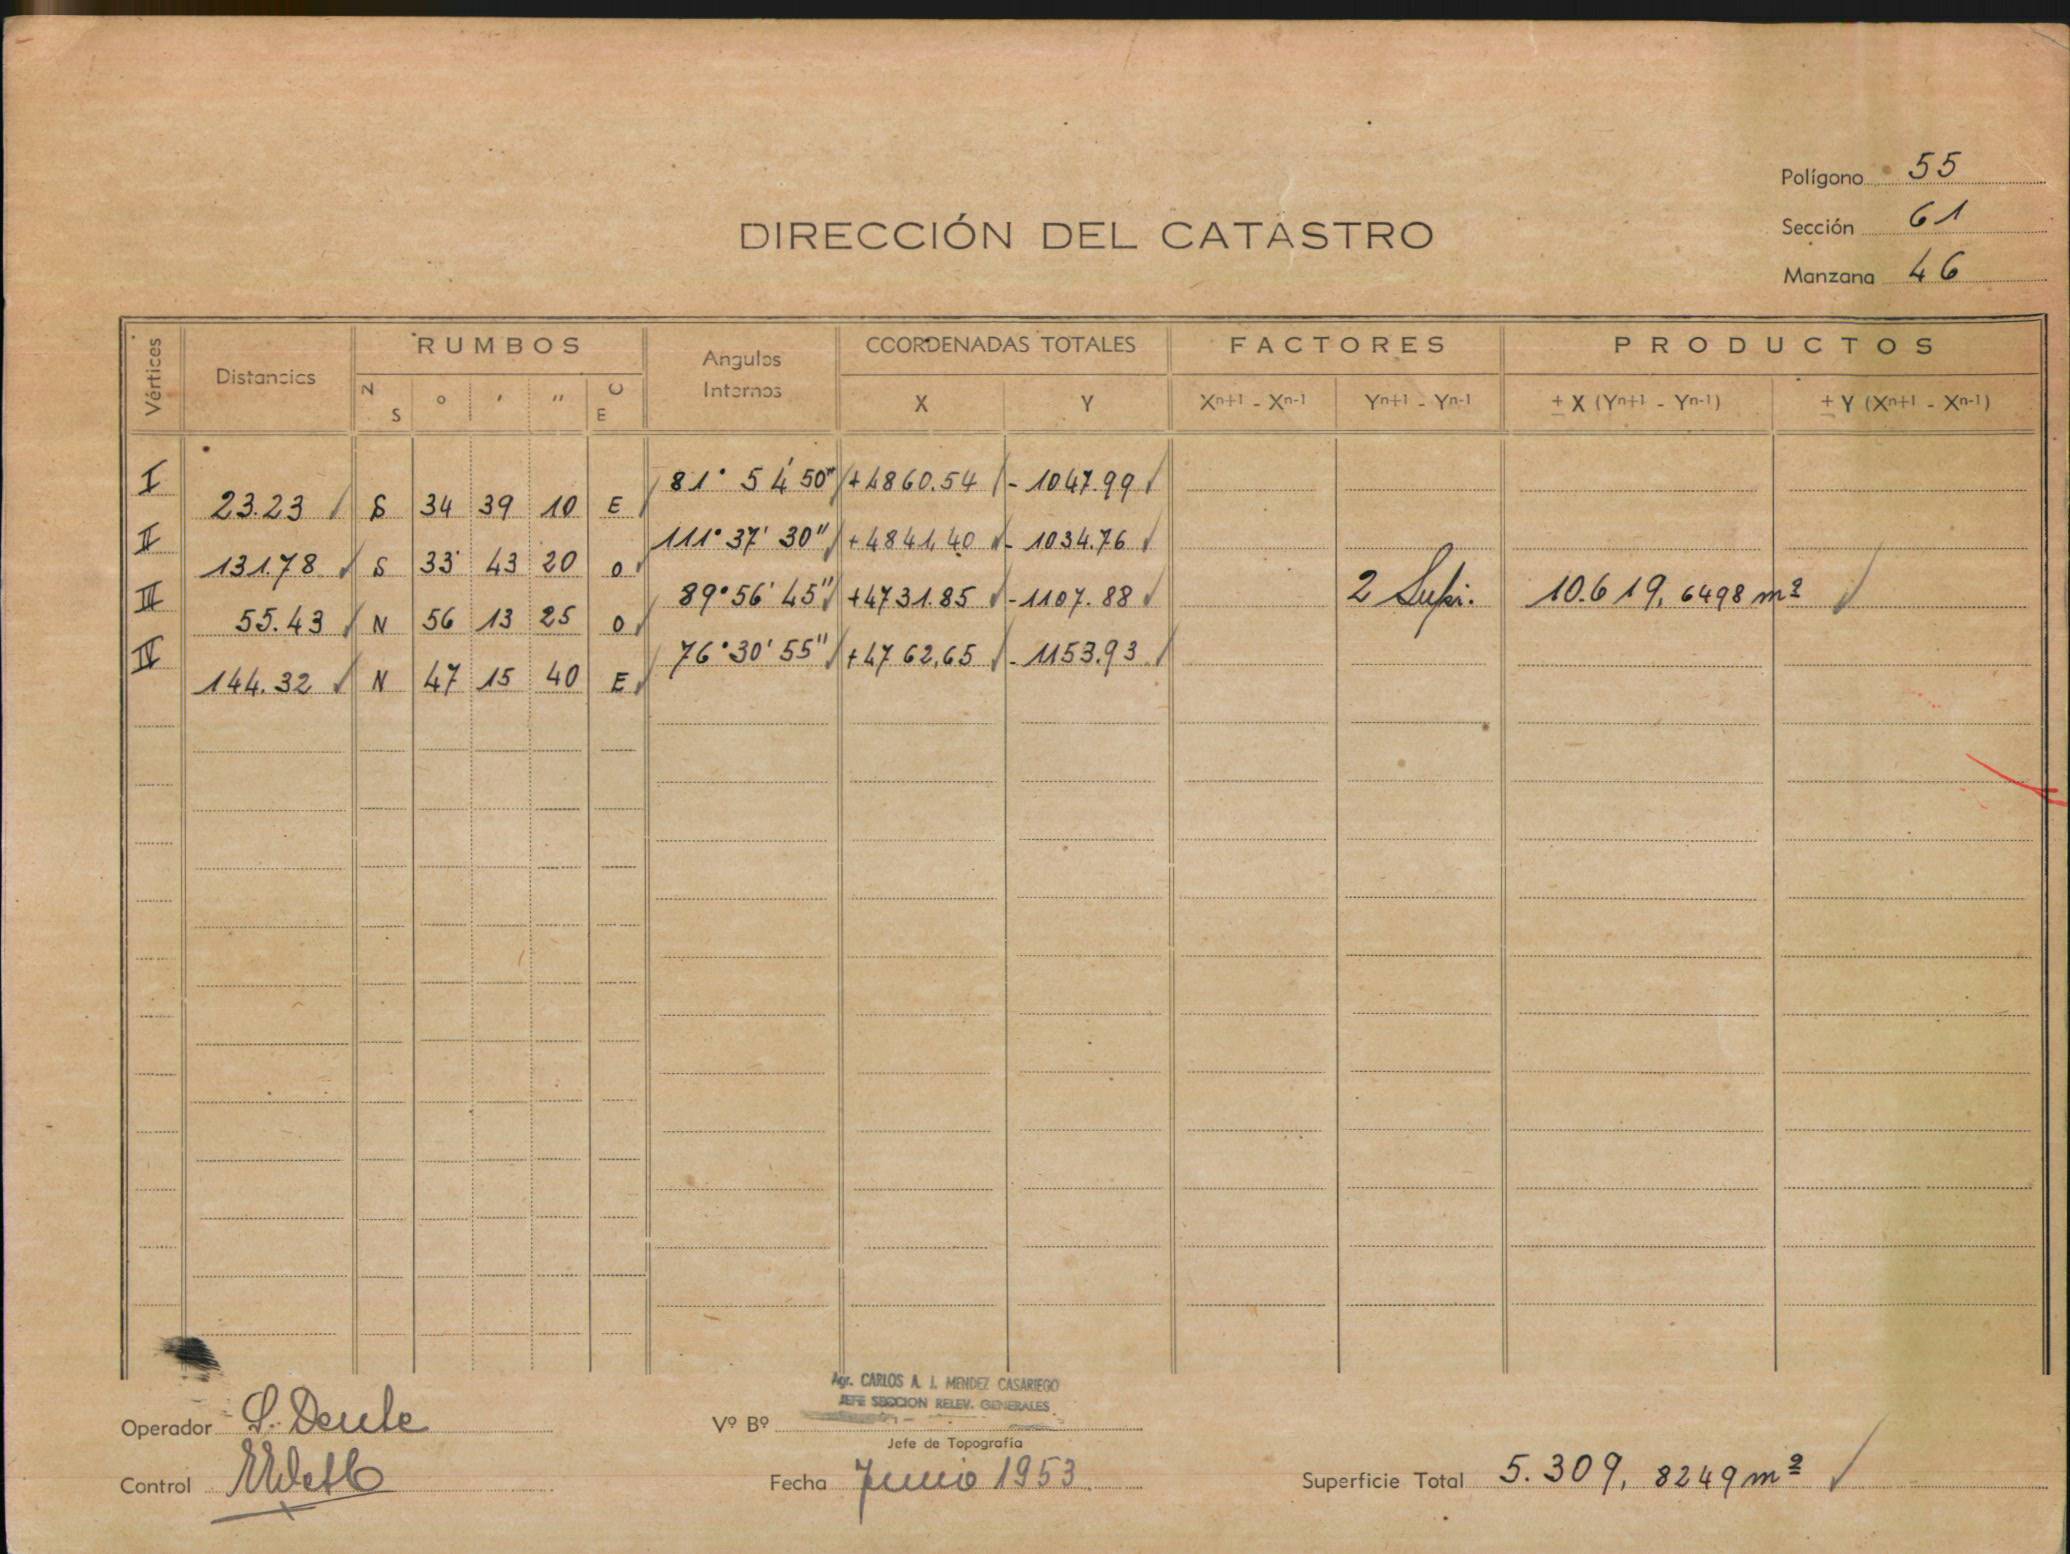 Polígono 55
DIRECCIÓN DEL CATASTRO
Sección 61
Manzana 46
Vértices Distancias RUMBOS Angulos Internos COORDENADAS TOTALES FACTORES PRODUCTOS
N S ° ' " O E X Y Xn+1 - Xn-1 Yn+1 - Yn-1 ± X (Yn+1 - Yn-1) ± Y (Xn+1 - Xn-1)
I 81° 54' 50" +4860.54 - 1047.99
23.23 S 34 39 10 E
II 111° 37' 30" +4841,40 - 1034.76
131.78 S 33 43 20 O
III 89° 56' 45" +4731.85 - 1107.88 2 Supr. 10.619,6498 m²
55.43 N 56 13 25 O
IV 76° 30' 55" +4762,65 - 1153.93
144.32 N 47 15 40 E
Agr. CARLOS A. J. MENDEZ CASARIEGO
JEFE SECCION RELEV. GENERALES
Operador Vº Bº
Jefe de Topografía
Control Fecha Junio 1953 Superficie Total 5.309,8249 m²